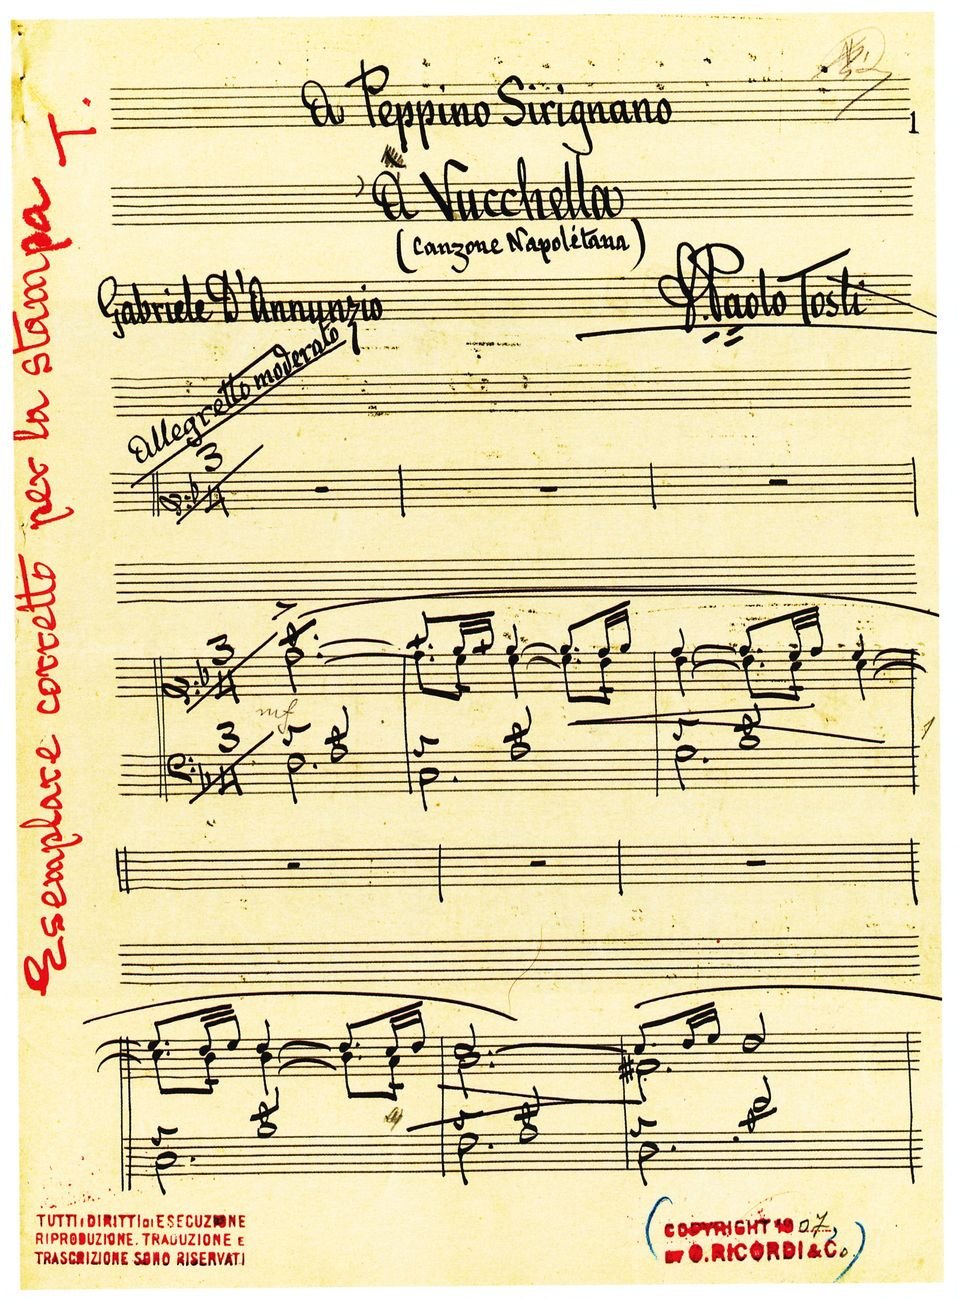 A Peppino Sirignano
1
'A Vucchella
(Canzone Napolétana)
Gabriele D'Annunzio
F. Paolo Tosti
Allegretto moderato
3
4
3
4
mf
3
4
Esemplare corretto per la stampa T.
TUTTI I DIRITTI DI ESECUZIONE
RIPRODUZIONE, TRADUZIONE E
TRASCRIZIONE SONO RISERVATI
COPYRIGHT 1907,
BY G. RICORDI & Co.